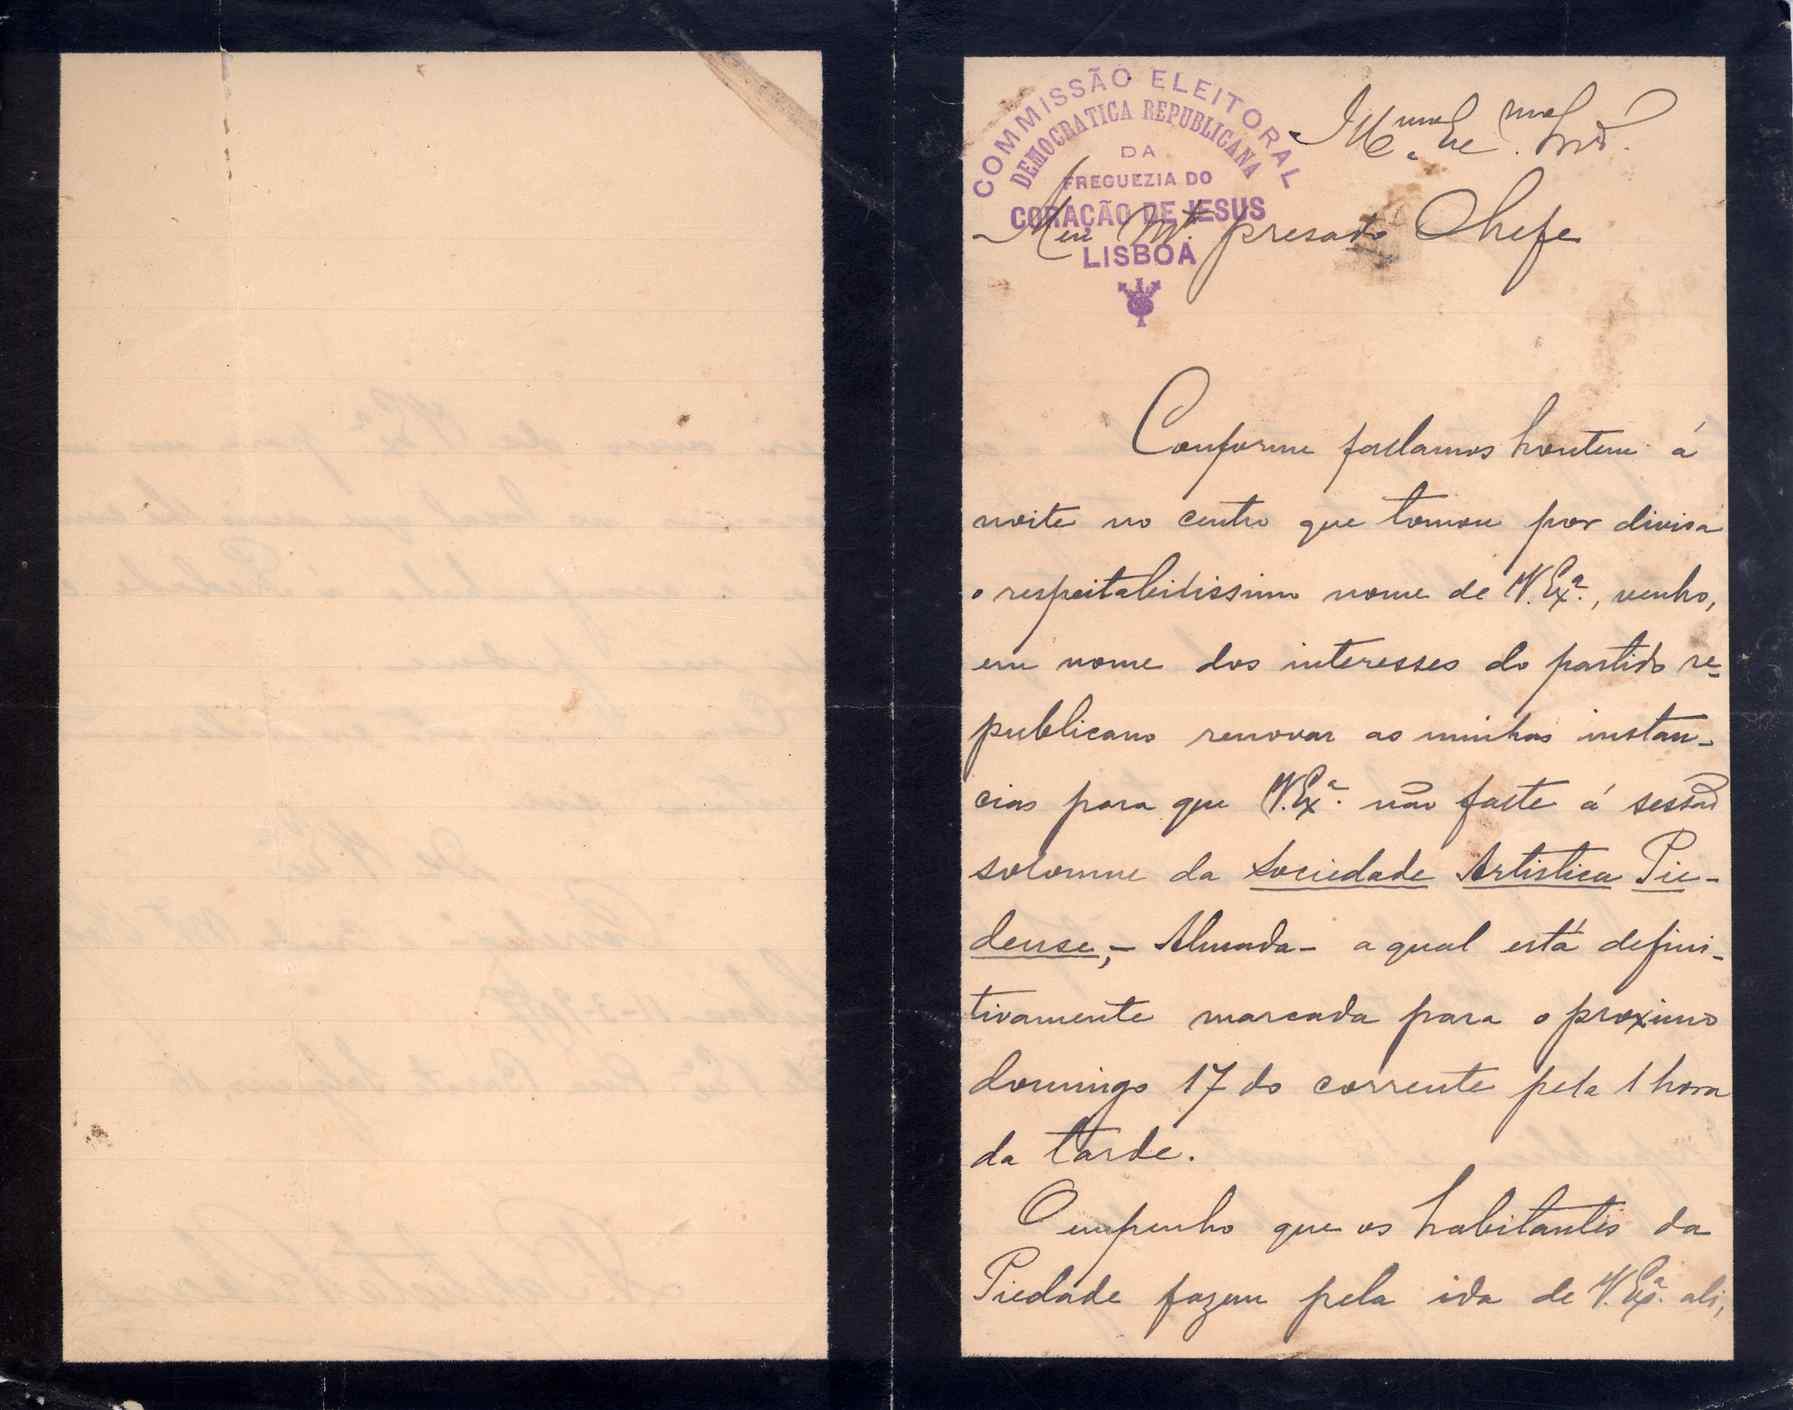 COMMISSÃO ELEITORAL
DEMOCRATICA REPUBLICANA
DA
FREGUEZIA DO
CORAÇÃO DE JESUS
LISBOA
Ill.mo e Ex.mo Snr.
Meu M.to presado Chefe
Conforme fallamos hontem á
noite no centro que tomou por divisa
o respeitabilissimo nome de V. Ex.ª, venho,
em nome dos interesses do partido re-
publicano renovar as minhas instan-
cias para que V. Ex.ª não falte á sessão
solemne da Sociedade Artistica Pie-
dense, - Almada - a qual está defini-
tivamente marcada para o proximo
domingo 17 do corrente pela 1 hora
da tarde.
O empenho que os habitantes da
Piedade fazem pela ida de V. Ex.ª ali,